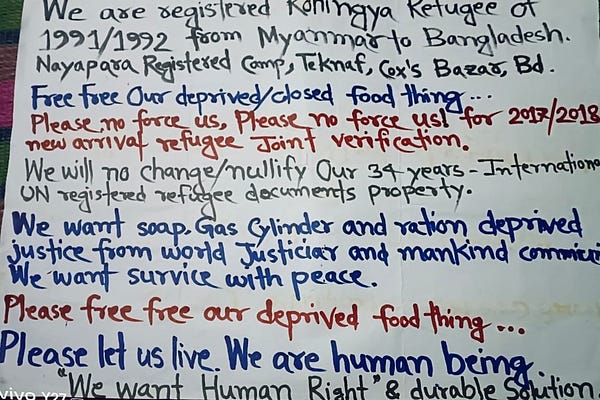 We are registered Rohingya Refugee of
1991/1992 from Myanmar to Bangladesh.
Nayapara Registered Camp, Teknaf, Cox's Bazar, Bd.
Free free Our deprived/closed food thing...
Please no force us, Please no force us! for 2017/2018
new arrival refugee Joint verification.
We will no change/nullify Our 34 years - Internationa
UN registered refugee documents property.
We want soap. Gas Cylinder and ration deprived
justice from world Justiciar and mankind
We want survice with peace.
Please free free our deprived food thing...
Please let us live. We are human being.
"We want Human Right" & durable Solution.
vivo Y27